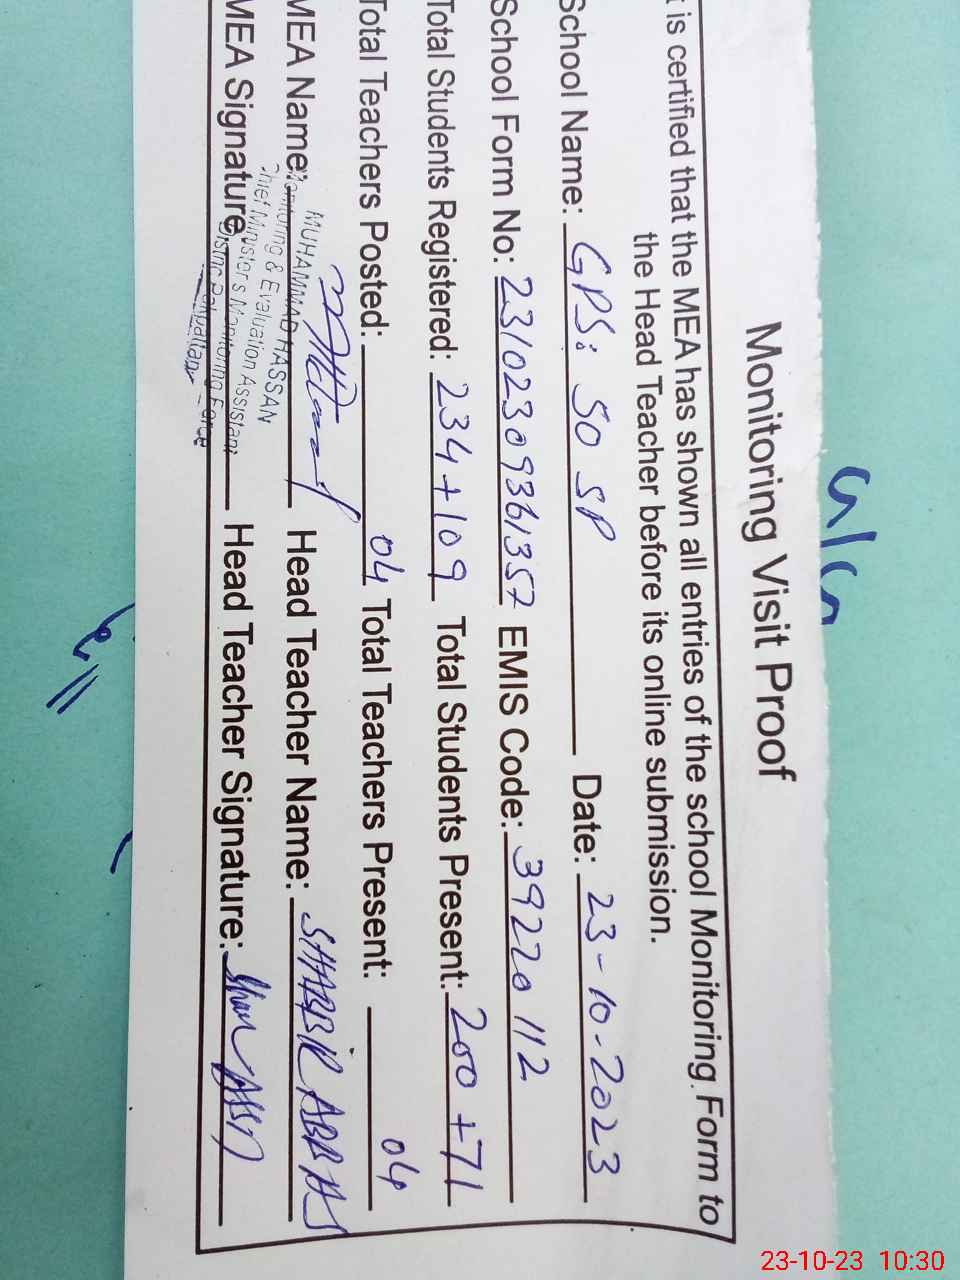 Monitoring Visit Proof
t is certified that the MEA has shown all entries of the school Monitoring Form to
the Head Teacher before its online submission.
School Name: GPS: 50 SP Date: 23-10-2023
School Form No: 23102309361357 EMIS Code: 39220112
Total Students Registered: 234+109 Total Students Present: 200+71
Total Teachers Posted: 04 Total Teachers Present: 04
MEA Name: Head Teacher Name: SHABBIR ABBAS
MUHAMMAD HASSAN
Monitoring & Evaluation Assistant
Chief Minister's Monitoring Force
MEA Signature: Head Teacher Signature:
23-10-23 10:30